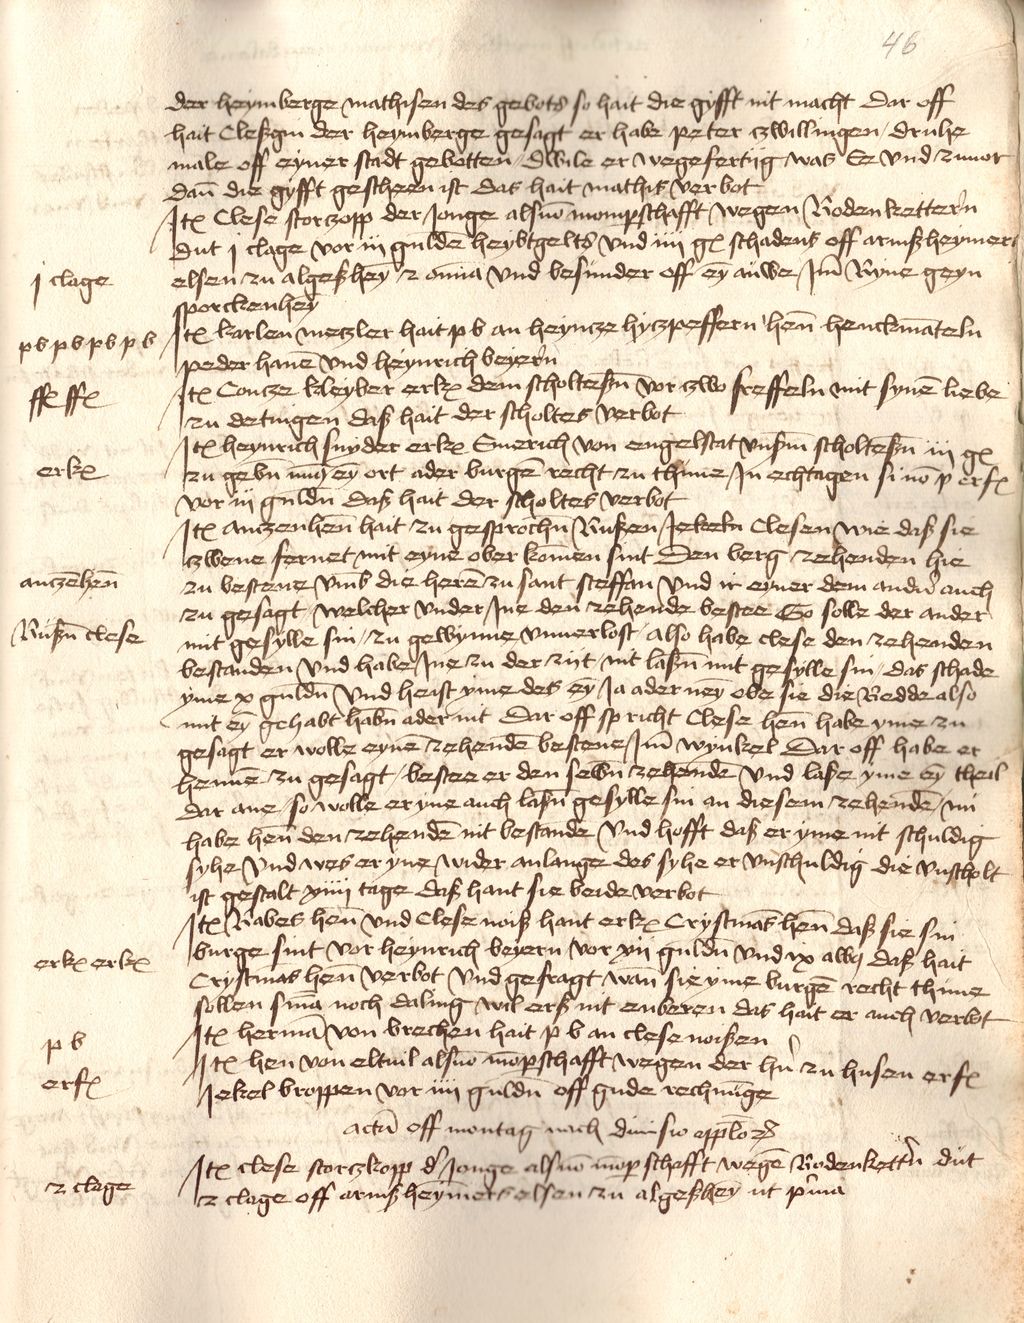 46
der heymberge mathisen des gebots so hait die gyfft nit macht Dar off
hait Cleßgin der heymberge gesagt er habe peter zwillingen druhe
male off eyner stadt gebotten dwile er wegefertiig was Ee vnd zuuor
dan̄ die gyfft gescheen ist das hait mathis verbot
Itꝫ Clese storczopp der Jonge als mompschafft wegen Rodenkettern
dut j clage vor iij guldē heybtgelts vnd iiij gꝫ schadens off armßheymers
j clage
elsen zu algeßhey̅ z om̄ia vnd besunder off ey̅ auwe Im̄ Ryne geyn
sporckenhey̅
pb pb pb pb
Itꝫ karlen meczler hait p b an heyncze hyczpeffern hen̄ henckmāteln
peder hanē vnd heynrich beyern
ffe ffꝫ
Itꝫ Concze kleyber erkꝫ dem scholteßn̄ vor zwo freffeln mit synē liebe
zu detingen daß hait der scholtes verbot
Itꝫ heynrich snyder erkꝫ Emerich von engelstat vnßm̄ scholteßn̄ iij gꝫ
erkꝫ
zu gebn̄ ey̅ ort ader burgē recht zu thune In echtagen si nō p erfꝫ
vor iij guldn̄ daß hait der scholtes verbot
Itꝫ anczenhen̄ hait zu gesprochn̄ Rußen Jekeln Clesen wie daß sie
zwene fernet mit eyne ober komen sint Den berg zehenden hie
anczēhen̄
zu bestene vmb die herē zu sant steffan vnd ir eyner dem andn̄ auch
zu gesagt welcher vnder Ine den zehende bestee So solle der ander
Rußn̄ clese
mit gesylle sin zu gewynne vnuerlost also habe clese den zehenden
bestanden vnd habe Ine zu der zijt nit laßn̄ mit gesylle sin das schade
yme x guldn̄ vnd heist yme des ey̅ Ja ader ney̅ obe sie die Redde also
mit ey̅ gehabt habn̄ ader nit Dar off spricht Clese hen̄ habe yme zu
gesagt er wolle eynē zehendē bestene Im̄ wynkel Dar off habe er
henne zu gesagt bestee er den selbn̄ zehendē vnd laße yme ey̅ theil
dar ane so wolle er yne auch laßn̄ gesylle sin an diesem zehendē nu
habe hen̄ den zehendē nit bestandē vnd hofft daß er yme nit schuldig
syhe vnd wes er yne wider anlange des syhe er vnschuldig die vnscholt
ist gestalt xiiij tage daß hant sie beide verbot
Itꝫ Rabes hen̄ vnd Clese noiß hant erkꝫ Crystmās hen̄ daß sie sin
erkꝫ erkꝫ
burge sint vor heynrich beyern vor xij guldn̄ vnd ix albꝫ daß hait
Crystmas hen̄ verbot vnd gefragt wan̄ sie yme burgē recht thune
sollen noch daling wil erß nit enberen das hait er auch verbot
p b
Itꝫ hermā von brechen hait p b an clese noißen
erfꝫ
Itꝫ hen von eltuil als mōpschafft wegen der hn̄ zu husen erfꝫ
Jekel broppen vor iiij guldn̄ off gude rechnūge
actū off montag nach diuisio applōꝝ
z clage
Itꝫ clese storczkopp d' Jonge als mōpschafft wegē Rodenkettn̄ dut
z clage off armßheymers elsen zu algeßhey̅ ut prima